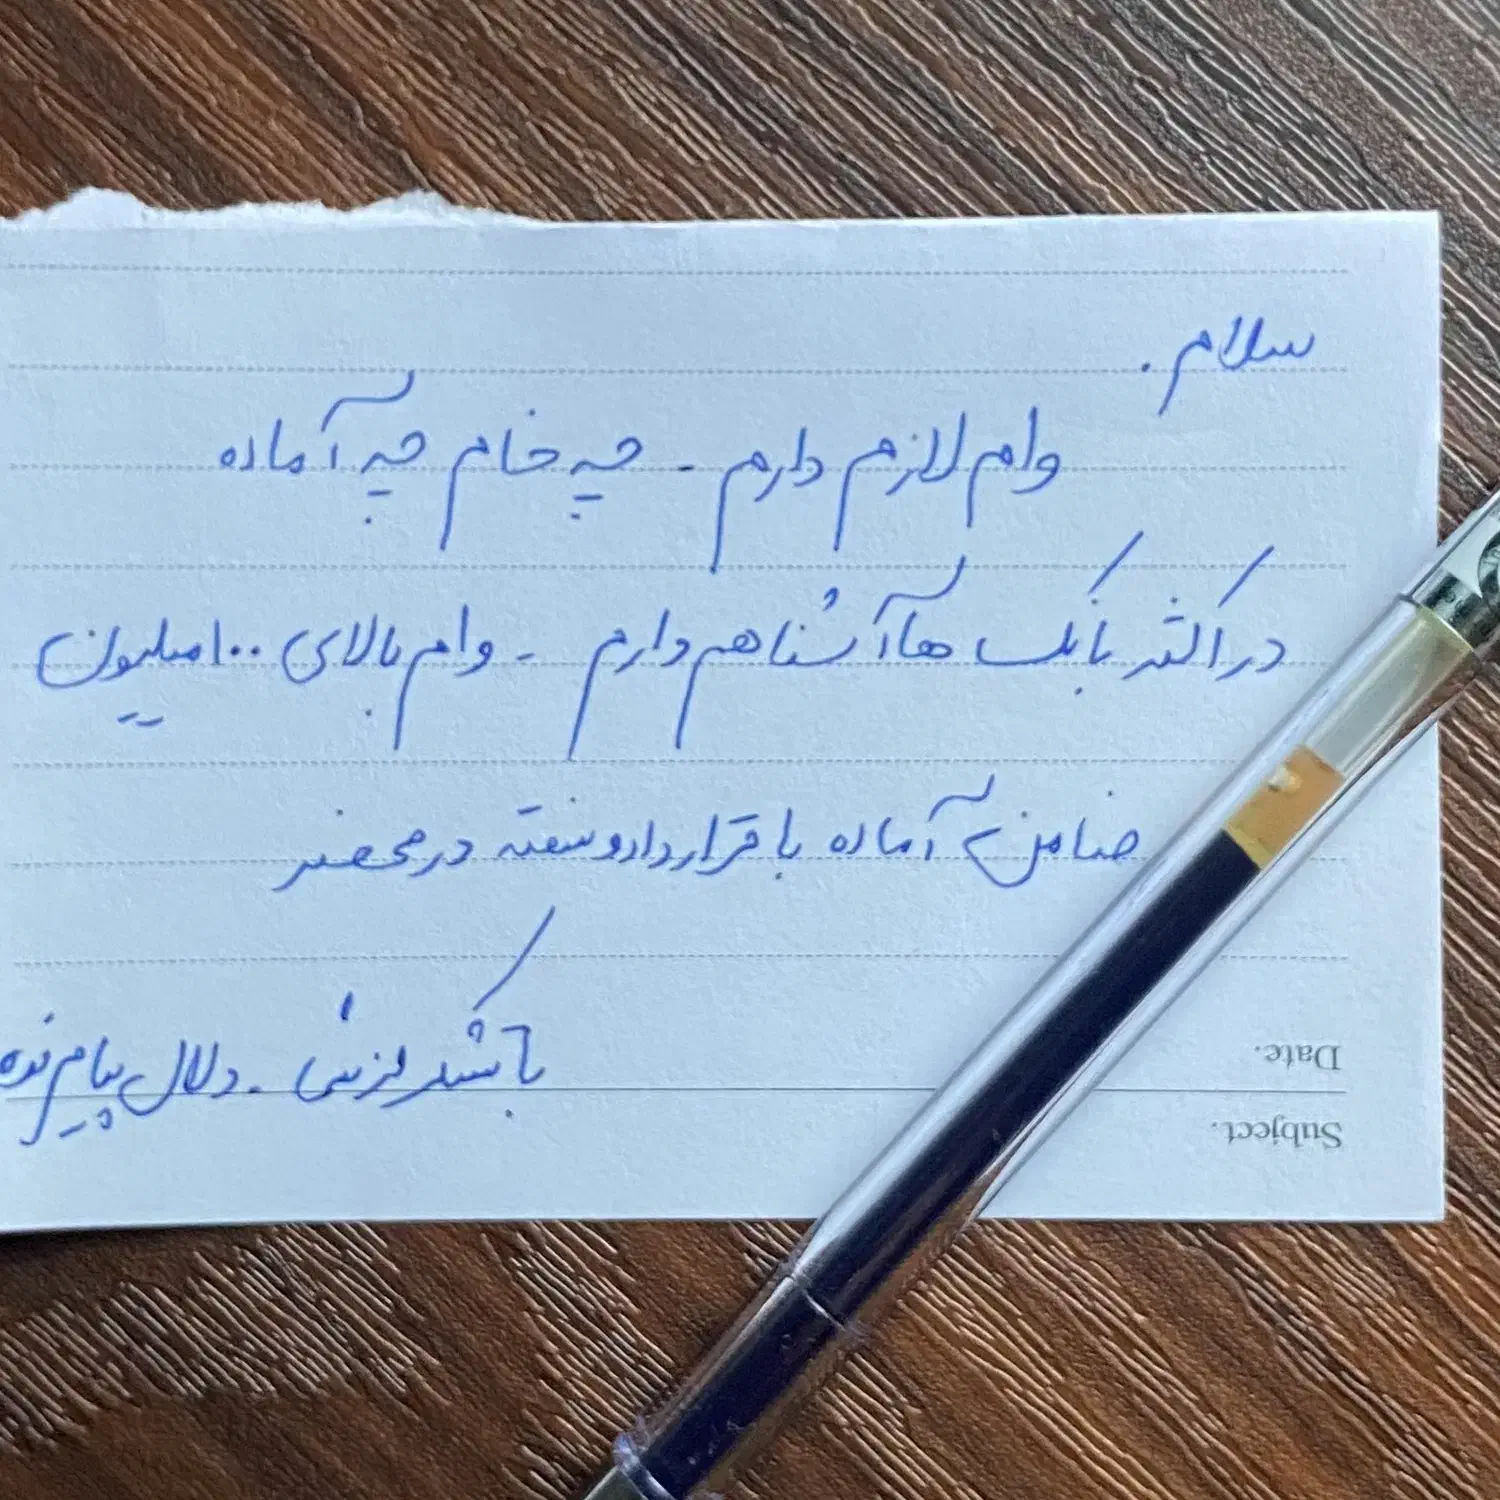 سلام.
وام لازم دارم - چه خام چه آماده
در اکثر بانک ها آشنا هم دارم - وام بالای ۱۰۰ میلیون
ضامن آماده با قرارداد و سفته در محضر
با تشکر - دلال پیام نده
Date.
Subject.